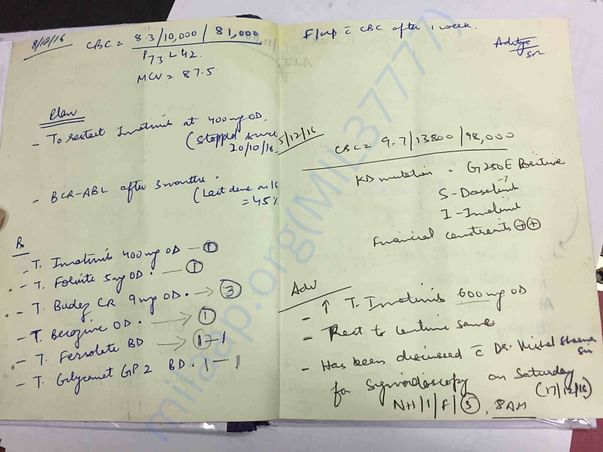 8/12/16 CBC = 8.3/10,000/81,000
P73 L42.
MCV = 87.5
Plan
- To restart Imatinib at 400mg OD.
(Stopped since
20/10/16.
- BCR-ABL after 3 months.
(Last done
= 45%
Rx
- T. Imatinib 400mg OD - 1
- T. Folvite 5mg OD. - 1
- T. Budez CR 9mg OD. → 3
- T. Becozinc OD. → 1
- T. Fersolate BD → 1-1
- T. Glycomet GP2 BD. 1-1
F/up c̄ CBC after 1 week.
Aditya
SR
5/12/16 CBC = 9.7/13800/98,000
KD mutation - G250E Positive
S-Dasatinib
I-Imatinib
Financial constraints ++
Adv
- ↑ T. Imatinib 600mg OD
- Rest to continue same
- Has been discussed c̄ Dr.
for Sigmoidoscopy on Saturday
(17/12/16)
NH/1/F/5, 8AM
milaap.org(MIL37777)